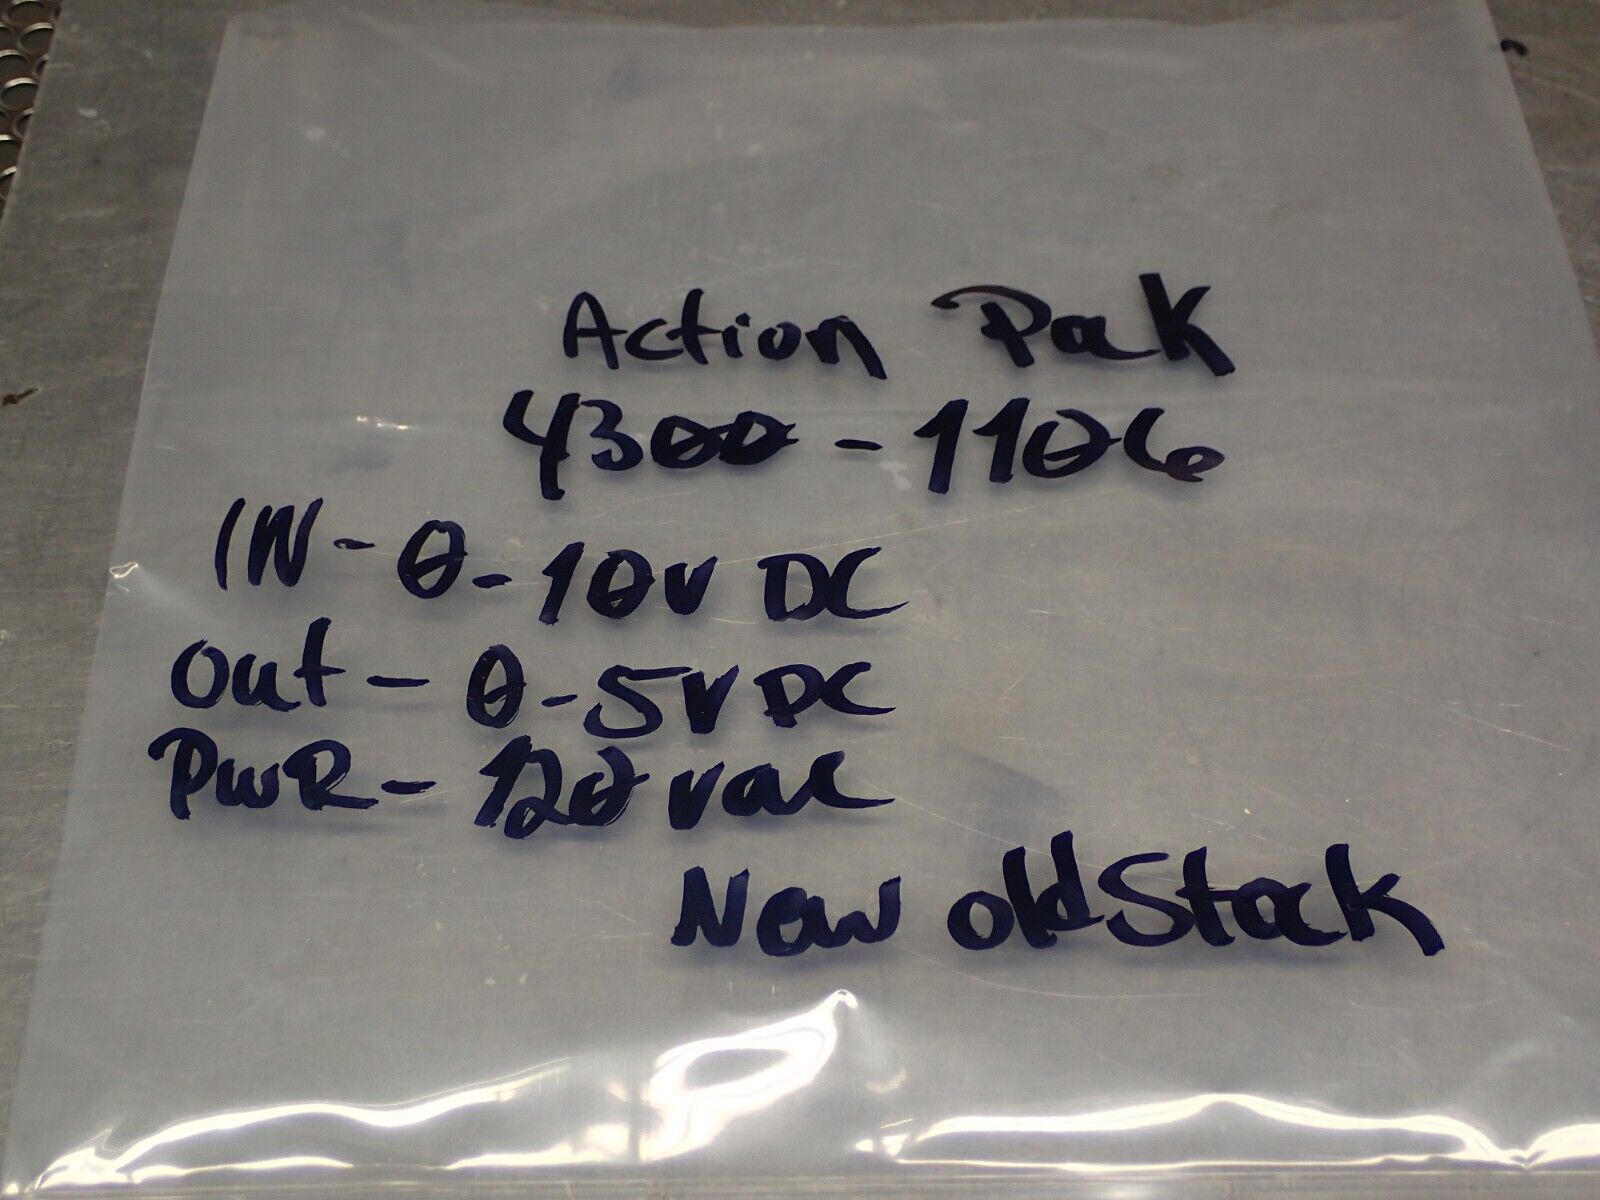 Action Pak
4300-1106
IN-0-10v DC
out-0-5v DC
PWR-120vac
New old Stock